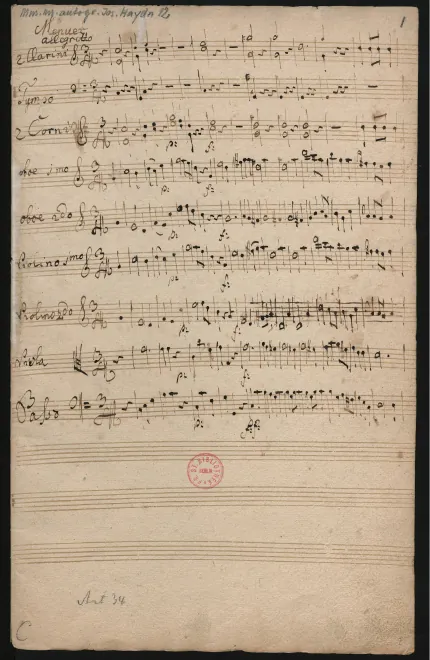 Mus. ms. autogr. Jos. Haydn 12
1
Menuet
allegretto
2 Clarini
Tympo
2 Corni
oboe 1mo
oboe 2do
Violino 1mo
Violino 2do
Viola
Basso
p: f:
p: f:
p: f:
p: f:
p: f:
p: f:
p: f:
BERLIN
Art 34
C